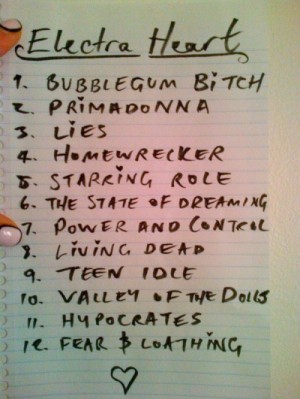 Electra Heart
1. BUBBLEGUM BiTCH
2. PRiMADONNA
3. LiES
4. HOMEWRECKER
5. STARRiNG ROLE
6. THE STATE OF DREAMiNG
7. POWER AND CONTROL
8. LiViNG DEAD
9. TEEN iDLE
10. VALLEY OF THE DOLLS
11. HYPOCRATES
12. FEAR & LOATHiNG